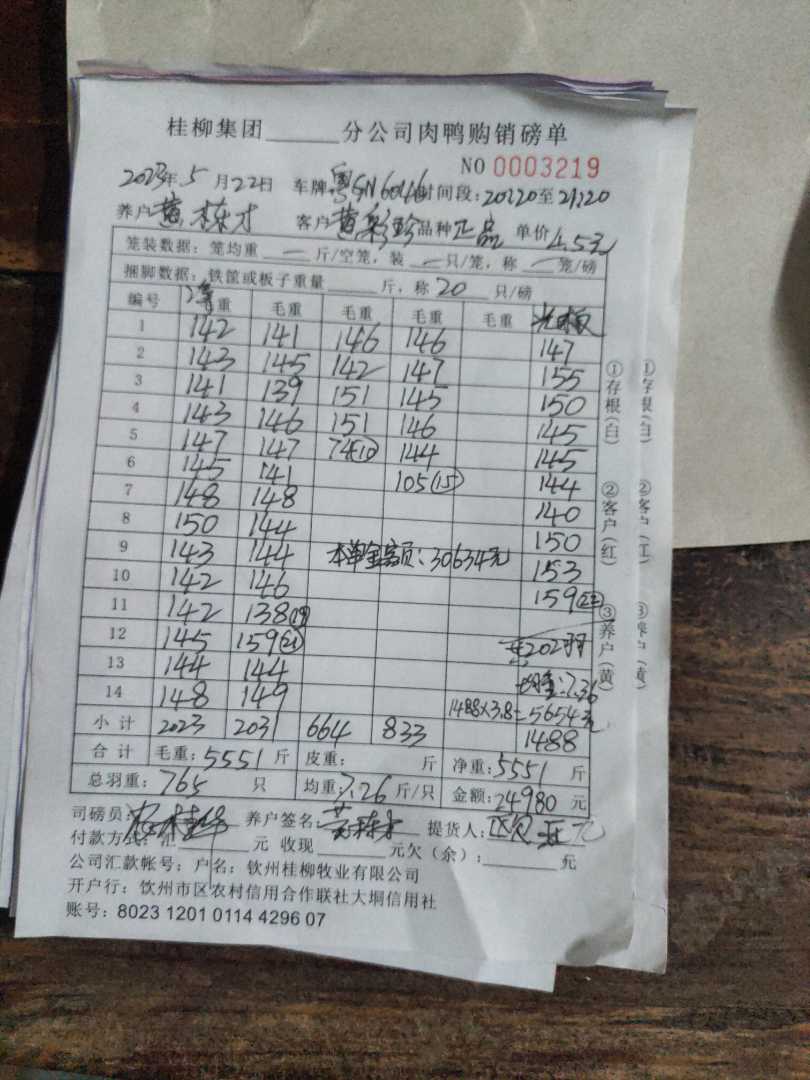 桂柳集团______分公司肉鸭购销磅单
NO 0003219
2023年5月22日 车牌:粤GN6046 时间段:20:20至21:20
养户黄栋才 客户黄彩珍 品种正品 单价4.5元
笼装数据:笼均重一斤/空笼,装一只/笼,称一笼/磅
捆脚数据:铁筐或板子重量______斤,称20只/磅
编号 毛重 毛重 毛重 毛重 毛重
1 142 141 146 146 147
2 143 145 142 147 155
3 141 139 151 145 150
4 143 146 151 146 145
5 147 147 74(10) 144 145
6 145 141 105(15) 144
7 148 148 140
8 150 144 150
9 143 144 本单金额:30634元 153
10 142 146 159(22)
11 142 138(19)
12 145 159(21) 共202羽
13 144 144 均重:7.36
14 148 149 1488×3.8=5654元
小计 2023 2031 664 833 1488
合计 毛重:5551斤 皮重: 斤 净重:5551斤
总羽重:765只 均重:7.26斤/只 金额:24980元
司磅员: 养户签名:黄栋才 提货人:
付款方式:汇______元 收现______元欠(余):______元
公司汇款帐号:户名:钦州桂柳牧业有限公司
开户行:钦州市区农村信用合作联社大垌信用社
账号:8023 1201 0114 4296 07
①存根(白)
②客户(红)
③养户(黄)